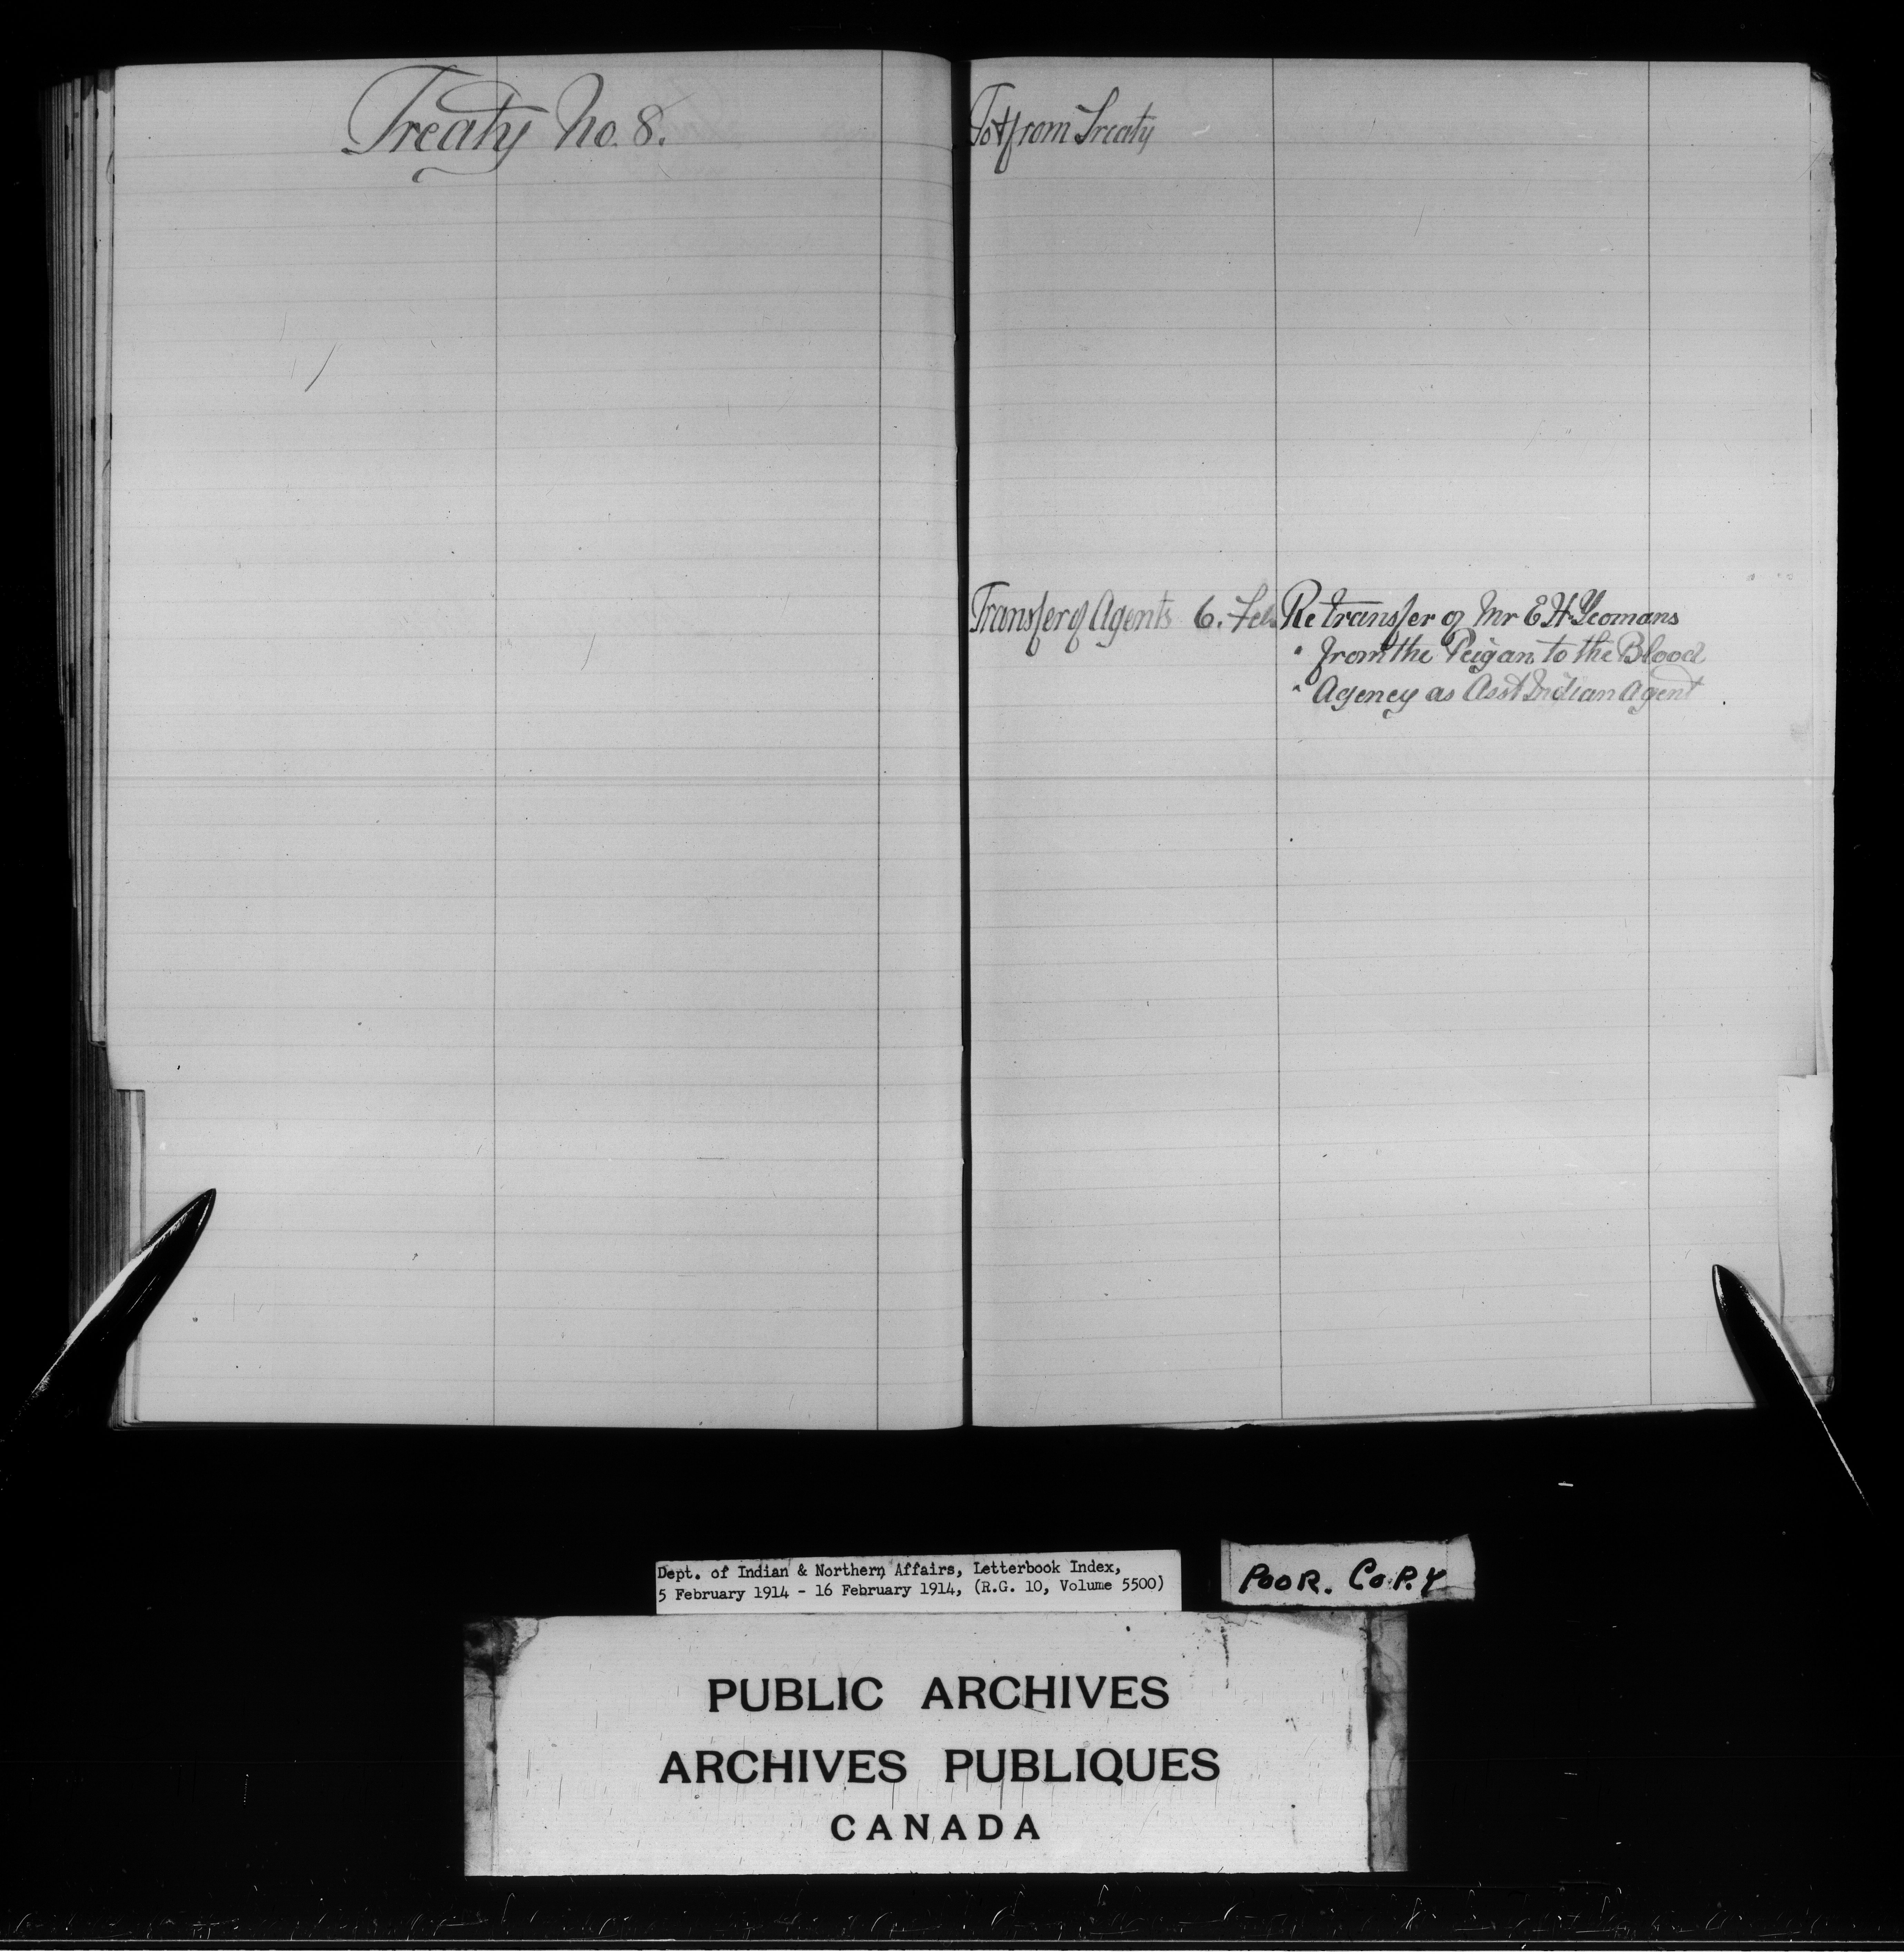 Treaty No. 8.
To & from Treaty
Transfer of Agents 6. Feb. Re transfer of Mr E H Yeomans
" from the Peigan to the Blood
" Agency as Asst Indian Agent
Dept. of Indian & Northern Affairs, Letterbook Index,
5 February 1914 - 16 February 1914, (R.G. 10, Volume 5500)
POOR. COPY
PUBLIC ARCHIVES
ARCHIVES PUBLIQUES
CANADA